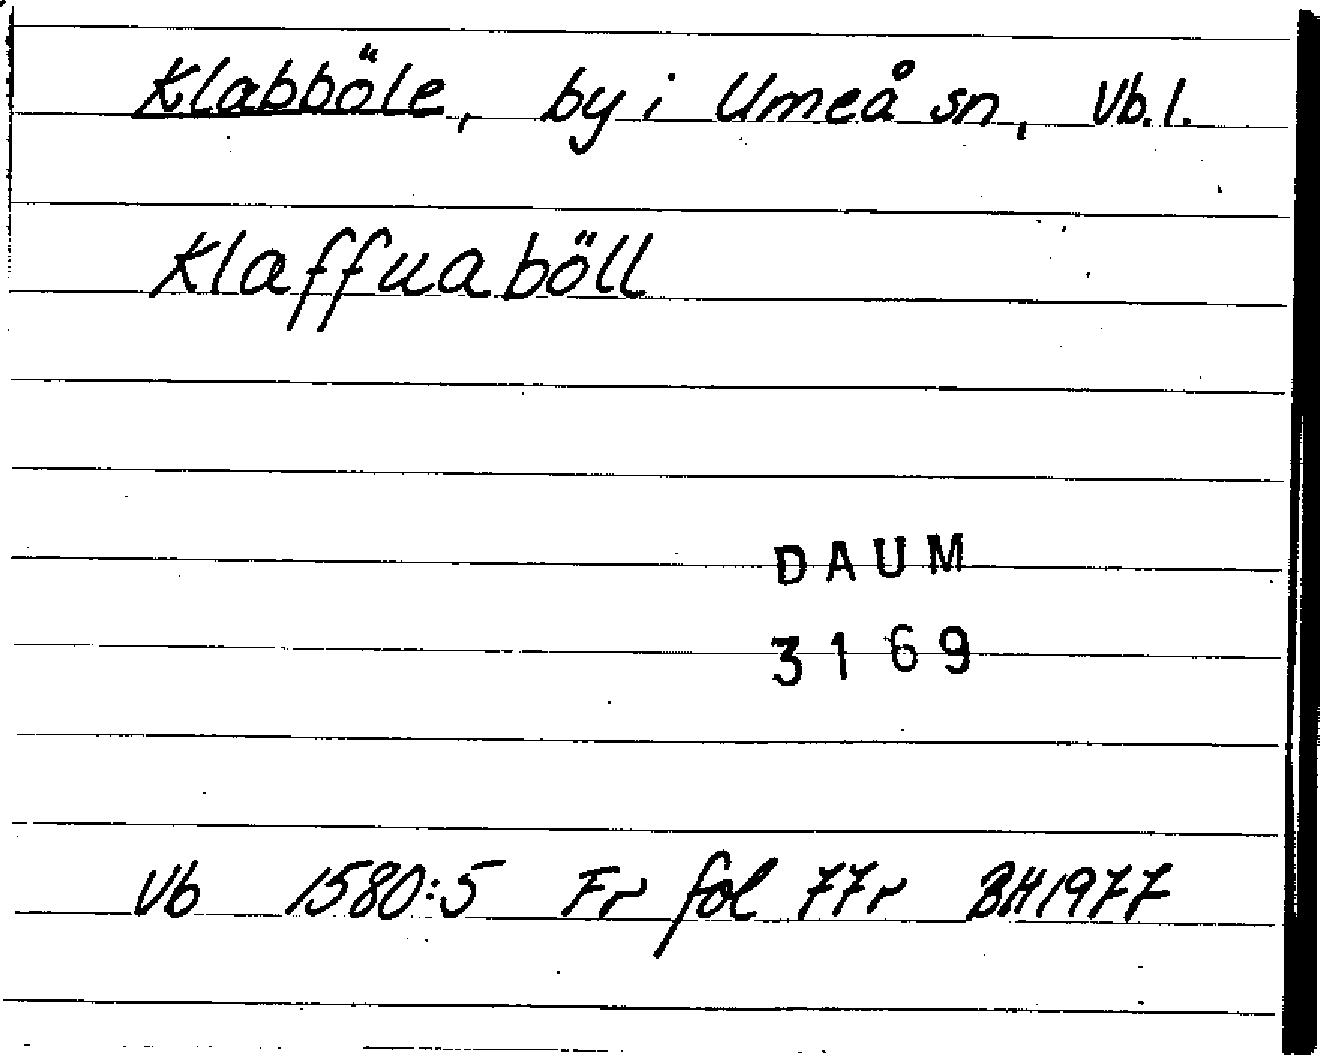 Klabböle, by i Umeå sn, Vb.l.
Klaffuaböll
DAUM
3169
Vb 1580:5 Fr fol 77r BH1977